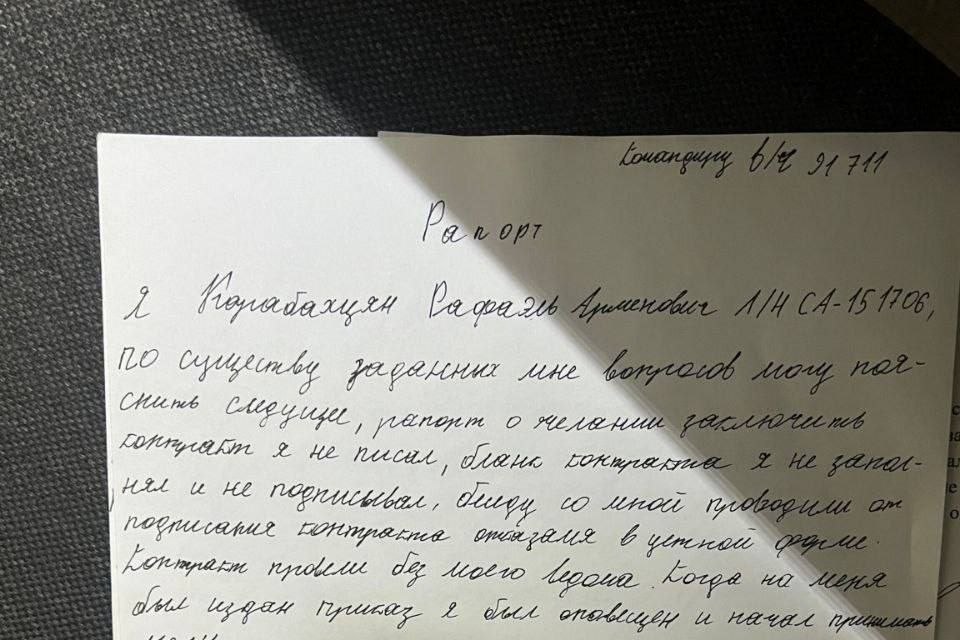 Командиру в/ч 91711
Рапорт
Я Карабахцян Рафаэль Арменович Л/Н СА-151706,
по существу заданных мне вопросов могу поя-
снить следущее, рапорт о желании заключить
контракт я не писал, бланк контракта я не запол-
нял и не подписывал, беседу со мной проводили от
подписания контракта отказался в устной форме.
Контракт провели без моего ведома. Когда на меня
был издан приказ я был оповещен и начал принимать